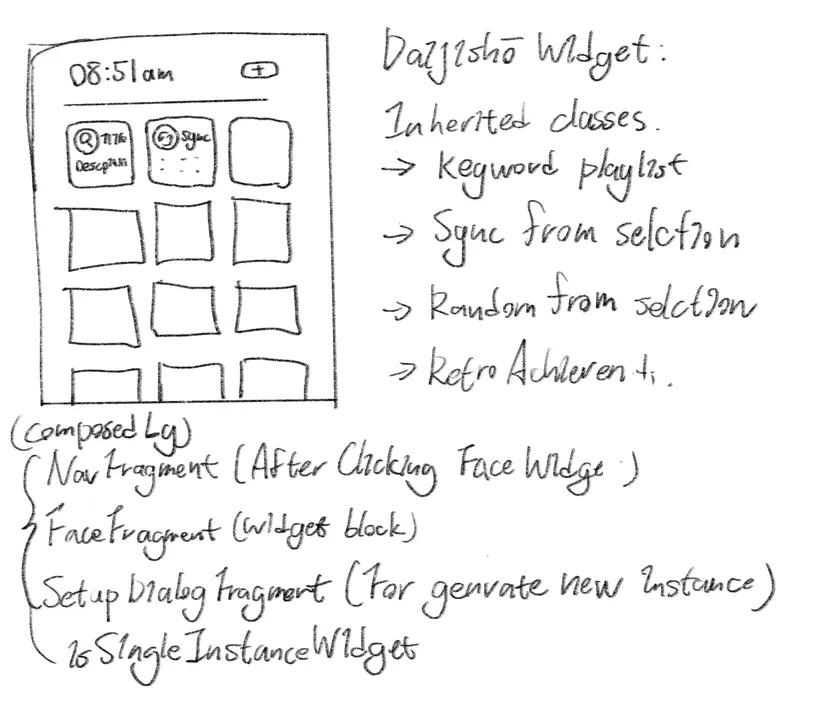 08:51am
+
Title
Descption
Sync
Daijishō Widget:
Inherited classes.
→ Keyword playlist
→ Sync from selction
→ Random from selction
→ Retro Achievent.
(Composed by)
NavFragment (After Clicking Face Widge)
FaceFragment (widget block)
SetupDialogFragment (For genrate new instance)
isSingleInstanceWidget